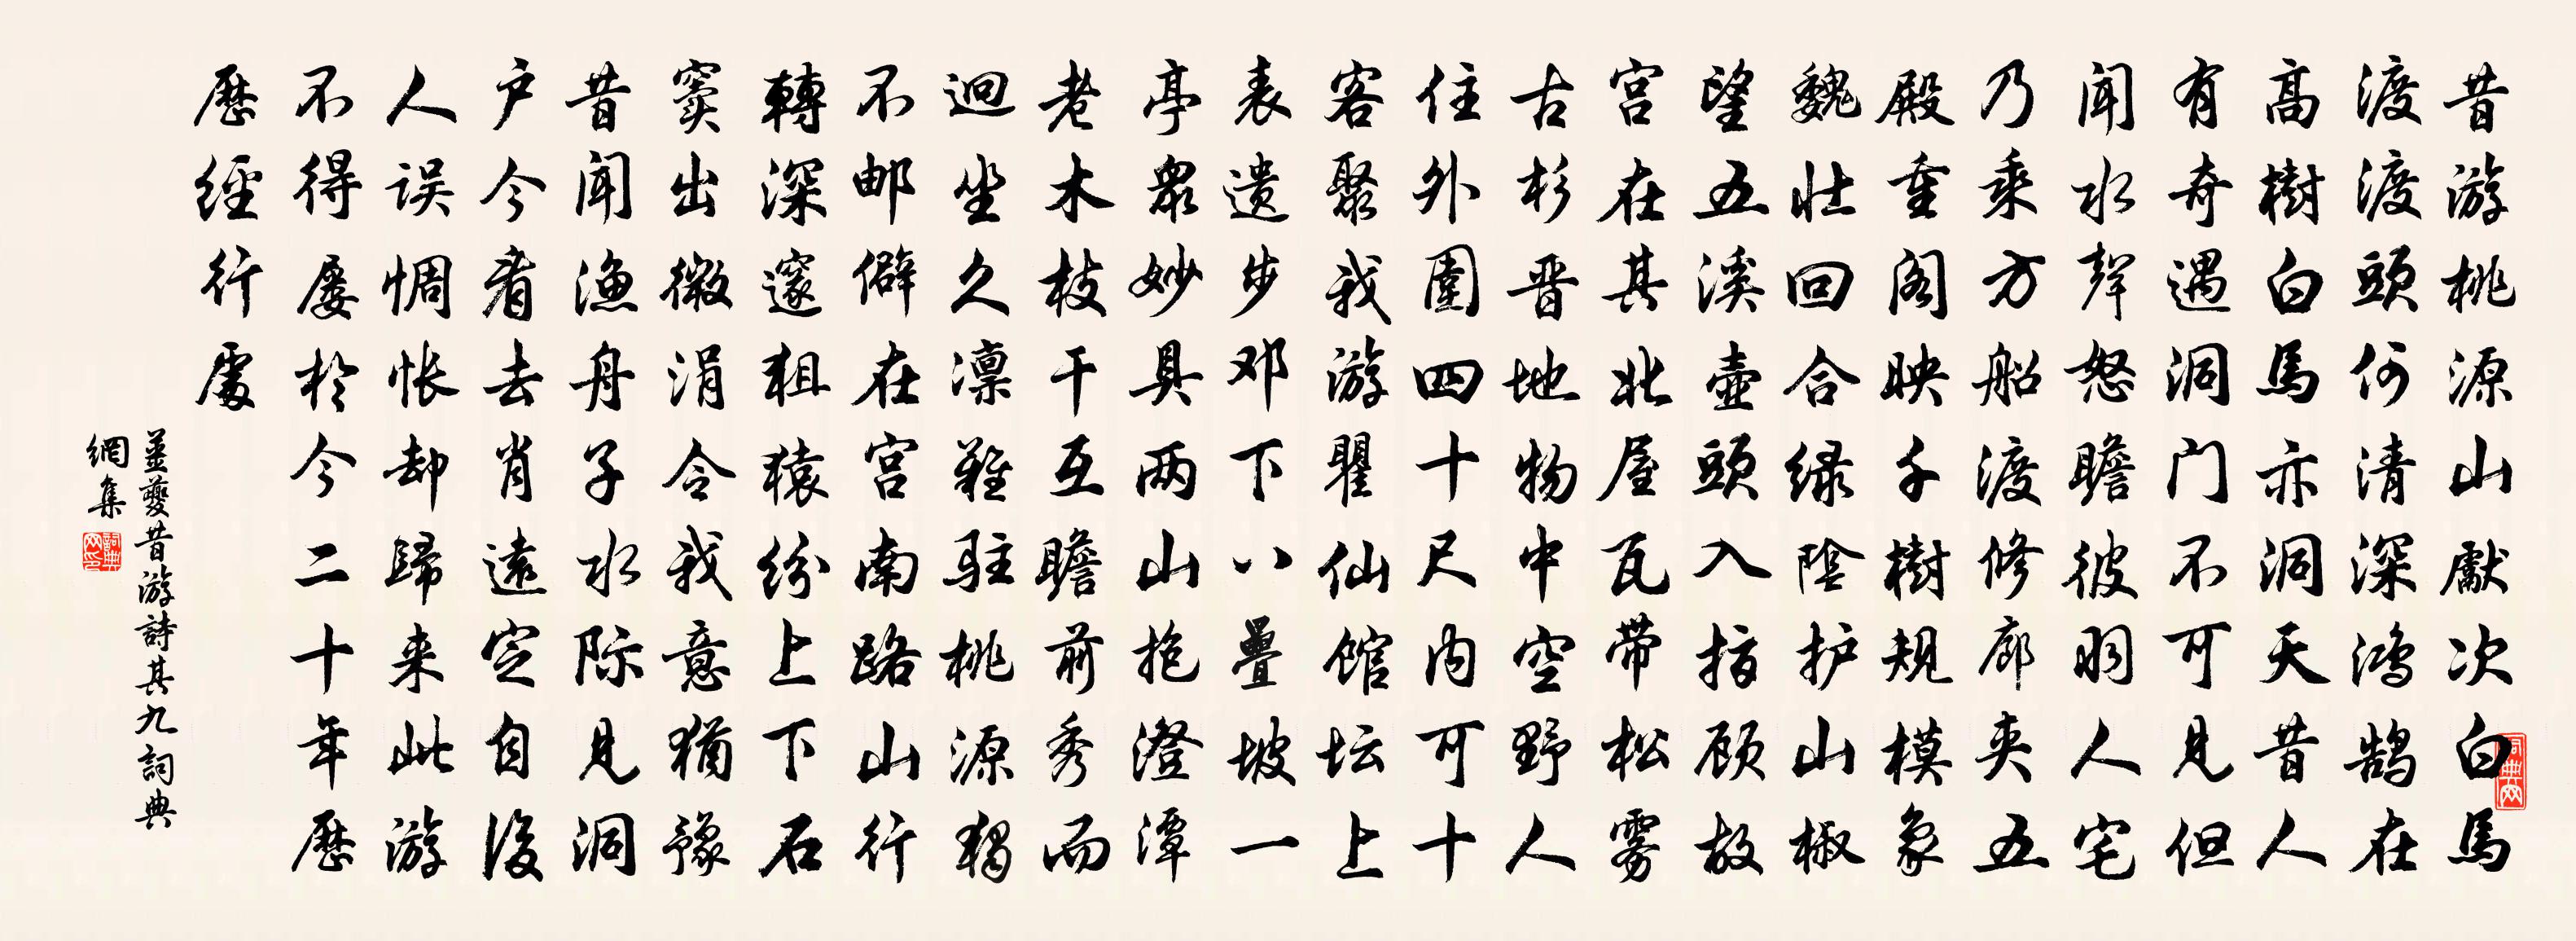 昔游桃源山獻次白馬
渡渡頭何清深鴻鵠在
高樹白馬亦洞天昔人
有奇遇洞门不可見但
闻水聲怒瞻彼羽人宅
乃乘方船渡修廊夹五
殿重阁映千樹規模象
魏壮回合绿陰护山椒
望五溪壶頭入指顾故
宫在其北屋瓦带松雾
古杉晋地物中空野人
住外圍四十尺内可十
客聚我游瞿仙馆坛上
表遗步邓下八疊坡一
亭眾妙具两山抱澄潭
老木枝干互瞻前秀而
迥坐久凛難駐桃源獨
不邮僻在宫南路山行
轉深邃狙猿纷上下石
窦出微涓令我意猶豫
昔闻渔舟子水际見洞
户今看去肖遠定自後
人误惆怅却歸来此游
不得屡於今二十年歷
歷經行處
薑夔昔游詩其九詞典
網集
詞典网印
詞典网